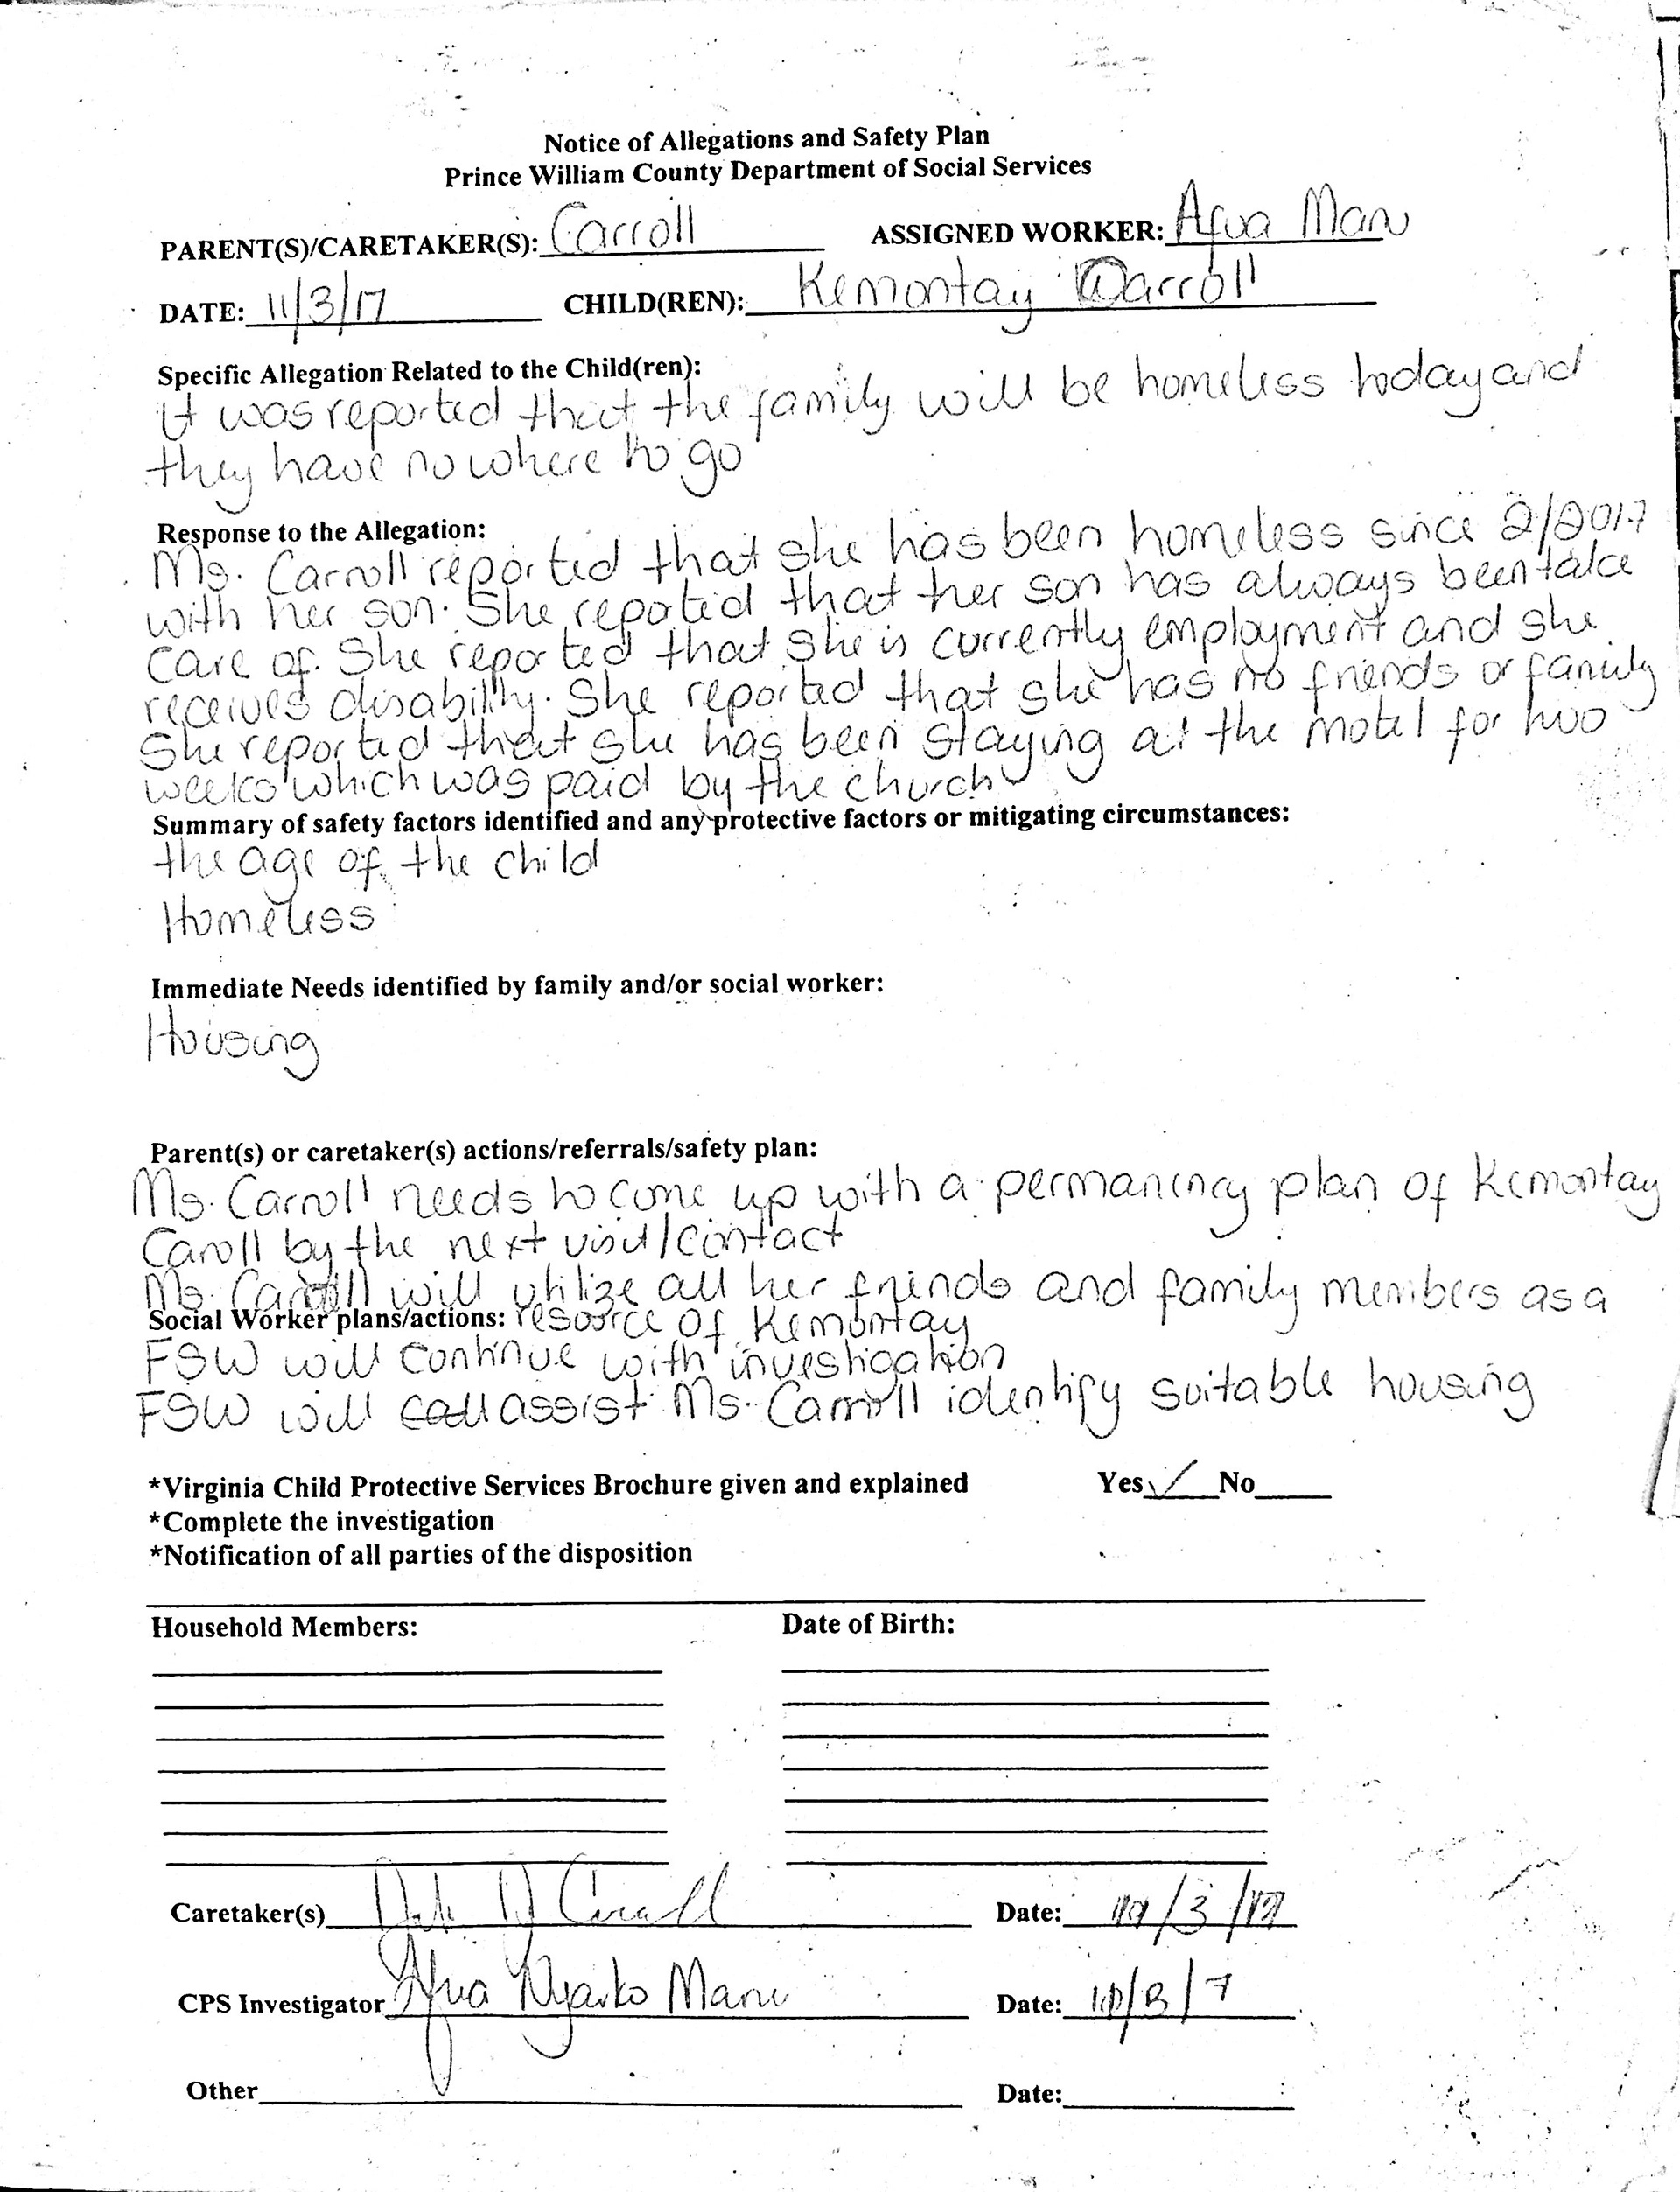 Notice of Allegations and Safety Plan
Prince William County Department of Social Services
PARENT(S)/CARETAKER(S): Carroll ASSIGNED WORKER: Afua Manu
DATE: 11/3/17 CHILD(REN): Kemontay Carroll
Specific Allegation Related to the Child(ren):
It was reported that the family will be homeless today and
they have no where to go
Response to the Allegation:
Ms. Carroll reported that she has been homeless since 2/2017
with her son. She reported that her son has always been take
care of. She reported that she is currently employment and she
receives disability. She reported that she has no friends or family
She reported that she has been staying at the motel for two
weeks which was paid by the church
Summary of safety factors identified and any protective factors or mitigating circumstances:
the age of the child
Homeless
Immediate Needs identified by family and/or social worker:
Housing
Parent(s) or caretaker(s) actions/referrals/safety plan:
Ms. Carroll needs to come up with a permanency plan of Kemontay
Caroll by the next visit/contact
Ms. Carroll will utilize all her friends and family members as a
Social Worker plans/actions: resource of Kemontay
FSW will continue with investigation
FSW will call assist Ms. Carroll identify suitable housing
*Virginia Child Protective Services Brochure given and explained Yes ✓ No
*Complete the investigation
*Notification of all parties of the disposition
Household Members: Date of Birth:
Caretaker(s) D Carroll Date: /3/17
CPS Investigator Afua Nyarko Manu Date:
Other Date: